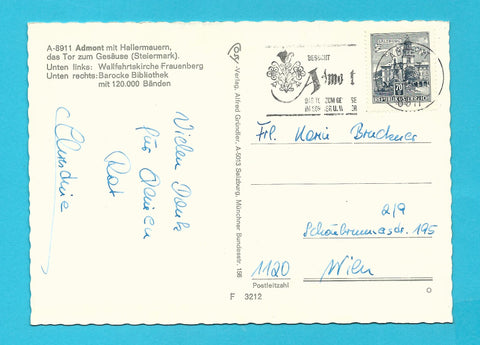 A-8911 Admont mit Hallermauern,
das Tor zum Gesäuse (Steiermark).
Unten links: Wallfahrtskirche Frauenberg
Unten rechts: Barocke Bibliothek
mit 120.000 Bänden
Vielen Dank
für Deinen
Rat
Christine
Cosy-Verlag, Alfred Gründler, A-5013 Salzburg, Münchner Bundesstr. 156
BESUCHT
Admont
REPUBLIK ÖSTERREICH
Frl. Karin Bruckner
2/9
Schönbrunnerstr. 195
1120 Wien
Postleitzahl
F 3212